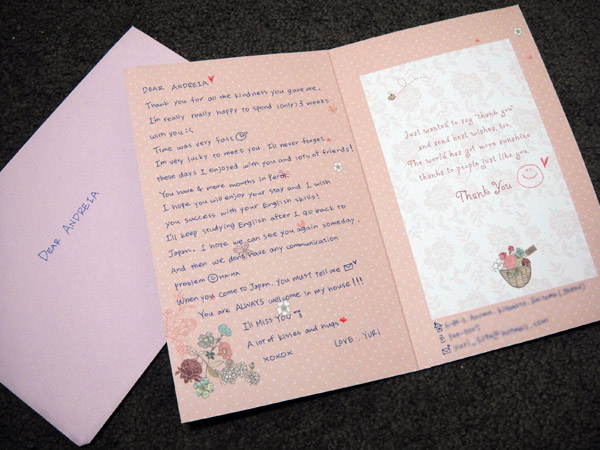 DEAR ANDREIA
DEAR ANDREIA
Thank you for all the kindness you gave me.
I'm really really happy to spend (only) 3 weeks
with you :(
Time was very fast
I'm very lucky to meet you. I'll never forget
these days I enjoyed with you and lots of friends!
You have 4 more months in Perth.
I hope you will enjoy your stay and I wish
you success with your English skills!
I'll keep studying English after I go back to
Japan. I hope we can see you again someday.
And then we don't have any communication
problem haha
When you come to Japan, you must tell me
You are ALWAYS welcome in my house!!!
I'll MISS YOU
A lot of kisses and hugs
XOXOX LOVE YURI
Just wanted to say "thank you"
and send best wishes, too.
The world has got more sunshine
thanks to people just like you.
Thank You